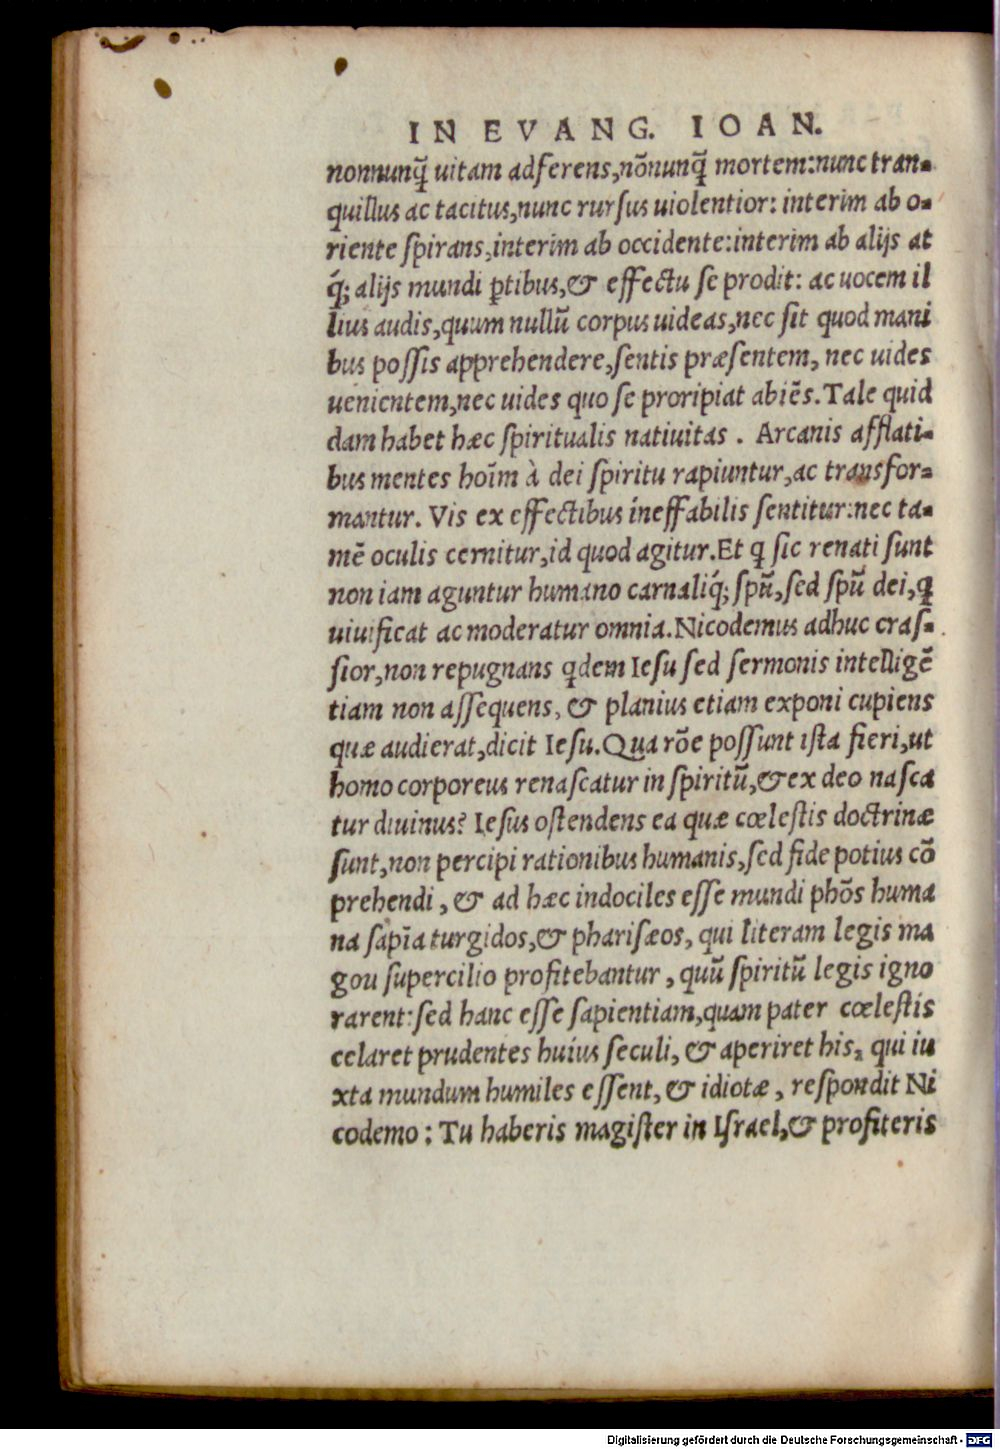 IN EVANG. IOAN.
nonnunq̃ uitam adferens,nõnunq̃ mortem:nunc tran-
quillus ac tacitus,nunc rursus uiolentior: interim ab o-
riente spirans,interim ab occidente:interim ab alijs at
q́; alijs mundi ꝑtibus,& effectu se prodit: ac uocem il
lius audis,quum nullũ corpus uideas,nec sit quod mani
bus possis apprehendere,sentis præsentem, nec uides
uenientem,nec uides quo se proripiat abiẽs.Tale quid
dam habet hæc spiritualis natiuitas . Arcanis afflati-
bus mentes hoĩm à dei spiritu rapiuntur,ac transfor-
mantur. Vis ex effectibus ineffabilis sentitur:nec ta-
mẽ oculis cernitur,id quod agitur.Et ꝗ sic renati sunt
non iam aguntur humano carnaliq́; spũ,sed spũ dei,ꝗ
uiuificat ac moderatur omnia.Nicodemus adhuc cras-
sior,non repugnans ꝗdem Iesu sed sermonis intelligẽ
tiam non assequens, & planius etiam exponi cupiens
quæ audierat,dicit Iesu.Qua rõe possunt ista fieri,ut
homo corporeus renascatur in spiritũ,& ex deo nasca
tur diuinus? Iesus ostendens ea quæ cœlestis doctrinæ
sunt,non percipi rationibus humanis,sed fide potius cõ
prehendi , & ad hæc indociles esse mundi phõs huma
na sapĩa turgidos,& pharisæos, qui literam legis ma
gou supercilio profitebantur , quũ spiritũ legis igno
rarent:sed hanc esse sapientiam,quam pater cœlestis
celaret prudentes huius seculi, & aperiret his, qui iu
xta mundum humiles essent, & idiotæ , respondit Ni
codemo : Tu haberis magister in Israel,& profiteris
Digitalisierung gefördert durch die Deutsche Forschungsgemeinschaft - DFG